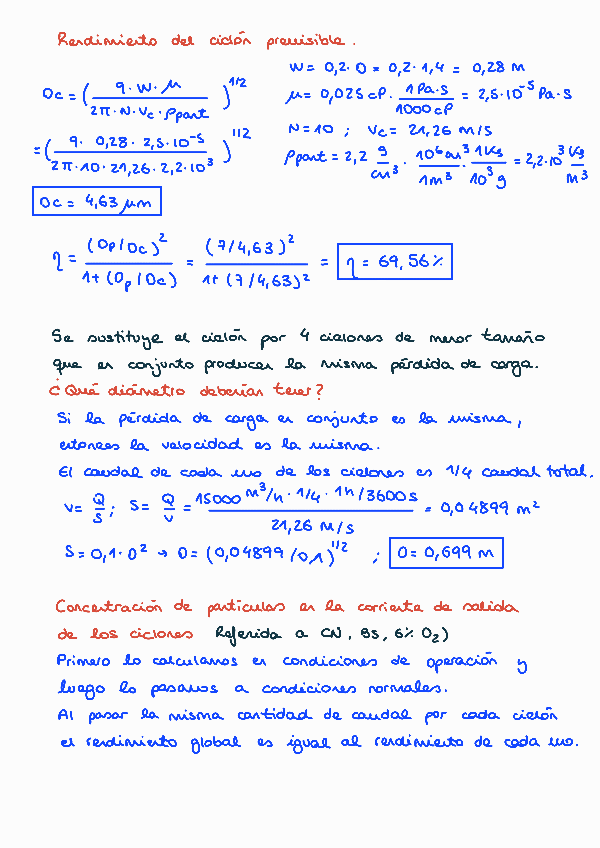 Rendimiento del ciclón previsible.
W = 0,2·D = 0,2·1,4 = 0,28 m
Dc = ( 9·W·μ / 2π·N·Vc·ρpart )^1/2
μ = 0,025 cP · 1 Pa·s / 1000 cP = 2,5·10^-5 Pa·s
N = 10 ; Vc = 21,26 m/s
= ( 9· 0,28· 2,5·10^-5 / 2π·10·21,26·2,2·10^3 )^1/2
ρpart = 2,2 g/cm^3 · 10^6 cm^3 / 1m^3 · 1Kg / 10^3 g = 2,2·10^3 Kg/m^3
Dc = 4,63 μm
η = (Dp/Dc)^2 / 1+(Dp/Dc) = (7/4,63)^2 / 1+(7/4,63)^2 = η = 69,56%
Se sustituye el ciclón por 4 ciclones de menor tamaño
que en conjunto producen la misma pérdida de carga.
¿Qué diámetro deberían tener?
Si la pérdida de carga en conjunto es la misma,
entonces la velocidad es la misma.
El caudal de cada uno de los ciclones es 1/4 caudal total.
V = Q/S ; S = Q/V = 15000 m^3/h · 1/4 · 1h/3600s / 21,26 m/s = 0,04899 m^2
S = 0,1·D^2 → D = (0,04899/0,1)^1/2 ; D = 0,699 m
Concentración de partículas en la corriente de salida
de los ciclones Referida a CN, BS, 6% O2)
Primero lo calculamos en condiciones de operación y
luego lo pasamos a condiciones normales.
Al pasar la misma cantidad de caudal por cada ciclón
el rendimiento global es igual al rendimiento de cada uno.